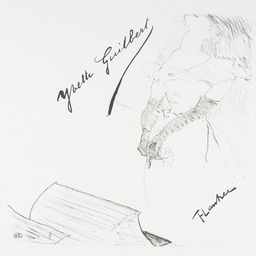 Yvette Guilbert
TLautrec